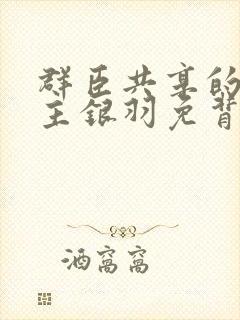 群臣共享的
主银羽免背
酒窝窝